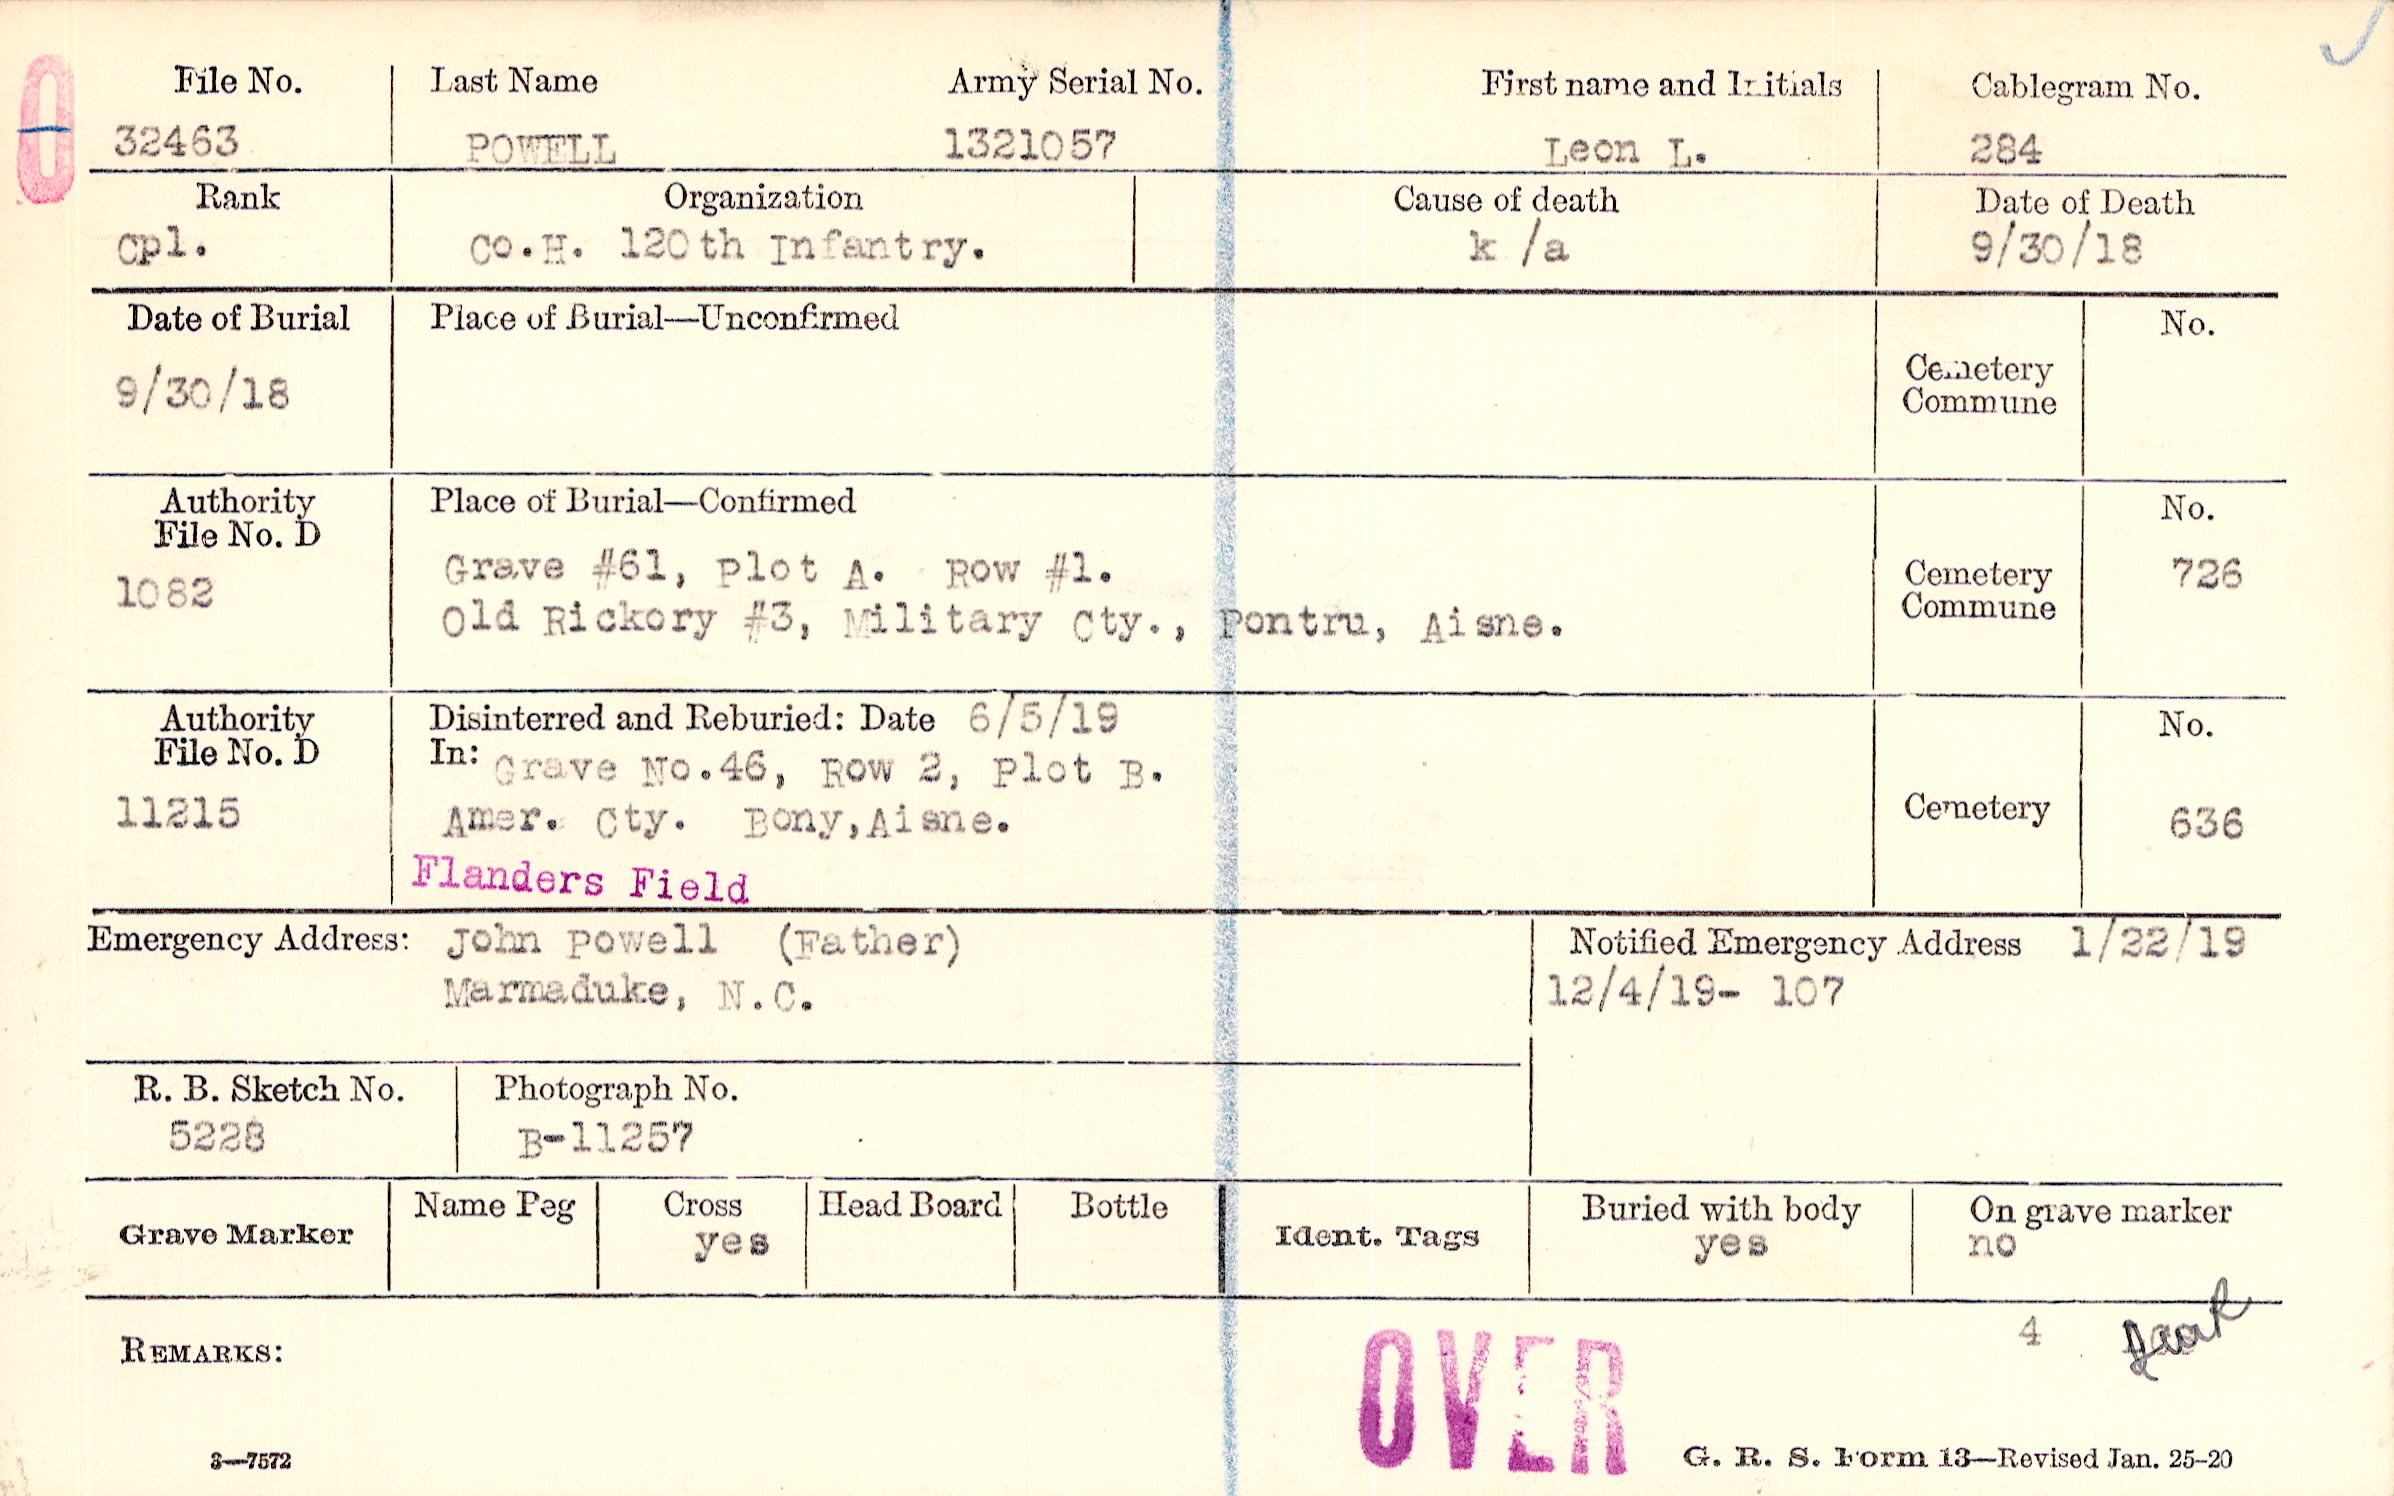 O
File No. Last Name Army Serial No. First name and Initials Cablegram No.
32463 POWELL 1321057 Leon L. 284
Rank Organization Cause of death Date of Death
Cpl. Co.H. 120th Infantry. k /a 9/30/18
Date of Burial Place of Burial—Unconfirmed No.
9/30/18
Cemetery
Commune
Authority Place of Burial—Confirmed No.
File No. D
1082
Grave #61, Plot A. Row #1.
Old Rickory #3, Military Cty., Pontru, Aisne.
Cemetery 726
Commune
Authority Disinterred and Reburied: Date 6/5/19 No.
File No. D In: Grave No.46, Row 2, Plot B.
11215 Amer. Cty. Bony,Aisne. Cemetery 636
Flanders Field
Emergency Address: John Powell (Father) Notified Emergency Address 1/22/19
Marmaduke, N.C. 12/4/19- 107
R. B. Sketch No. Photograph No.
5228 B-11257
Grave Marker Name Peg Cross Head Board Bottle Ident. Tags Buried with body On grave marker
yes yes no
4
REMARKS:
OVER
3—7572 G. R. S. Form 13—Revised Jan. 25-20